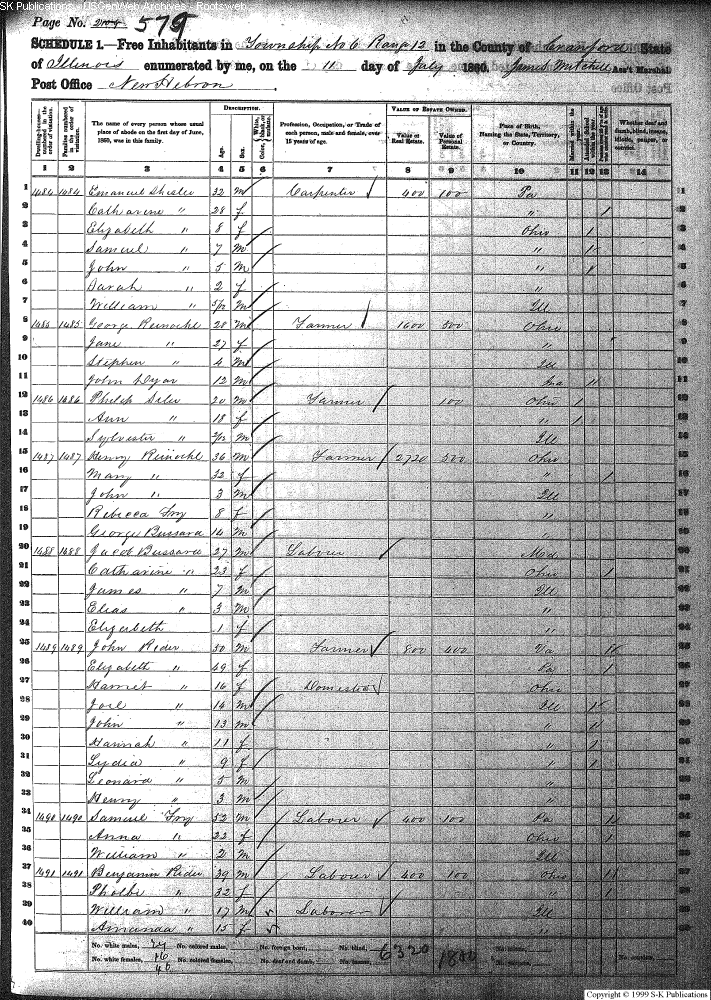 SK Publications - USGenWeb Archives - Rootsweb
Page No. 579
SCHEDULE 1.—Free Inhabitants in Township No 6 Range 12 in the County of Crawford State
of Illinois enumerated by me, on the 11 day of July 1860. James Mitchell Ass't Marshal
Post Office New Hebron
Dwelling-houses—numbered in the order of visitation.
Families numbered in the order of visitation.
The name of every person whose usual place of abode on the first day of June, 1860, was in this family.
DESCRIPTION.
Age.
Sex.
Color, White, black, or mulatto.
Profession, Occupation, or Trade of each person, male and female, over 15 years of age.
VALUE OF ESTATE OWNED.
Value of Real Estate.
Value of Personal Estate.
Place of Birth, Naming the State, Territory, or Country.
Married within the year.
Whether deaf and dumb, blind, insane, idiotic, pauper, or convict.
1 2 3 4 5 6 7 8 9 10 11 12 13 14
1 1484 1484 Emanuel 32 m Carpenter 400 100 Pa 1
2 Catharine " 28 f " 1 2
3 Elizabeth " 8 f Ohio 1 3
4 Samuel " 7 m " 1 4
5 John " 5 m " 1 5
6 Sarah " 2 f " 6
7 William " 5/12 m Ill 7
8 1485 1485 George Reinochl 28 m Farmer 1600 500 Ohio 8
9 Jane " 27 f " 9
10 Stephen " 4 m Ill 10
11 John Dyar 12 m 11
12 1486 1486 Philip Siler 20 m Farmer 100 Ohio 1 12
13 Ann " 18 f " 1 13
14 Sylvester " 2/12 m Ill 14
15 1487 1487 Henry Reinochl 36 m Farmer 2720 500 Ohio 15
16 Mary " 32 f " 1 16
17 John " 3 m Ill 17
18 Rebecca Fry 8 f " 18
19 George Bussard 14 m " 19
20 1488 1488 Jacob Bussard 27 m Labourer Md 20
21 Catharine " 23 f Ohio 1 21
22 James " 7 m Ill 22
23 Elias " 3 m "
24 Elizabeth 1 f "
25 1489 1489 John Rider 50 m Farmer 800 400 Va 1 25
26 Elizabeth " 49 f Pa 1
27 Harriet " 16 f Domestic Ohio
28 Joel " 14 m Ill 1
29 John " 13 m " 1
30 Hannah " 11 f " 1
31 Lydia " 9 f " 1
32 Leonard " 5 m "
33 Henry " 3 m "
34 1490 1490 Samuel Fry 52 m Laborer 400 100 Pa 1
35 Anna " 22 f Ohio 1
36 William " 2 m Ill
37 1491 1491 Benjamin Rider 39 m Laborer 400 100 Ohio 1
38 Phoebe " 32 f " 1
39 William " 17 m Laborer Ill
40 Amanda " 15 f "
No. white males, 24 No. colored males, No. foreign born, No. blind, 6320 1800
No. white females, 16 No. colored females, No. deaf and dumb,
40
Copyright © 1999 S-K Publications